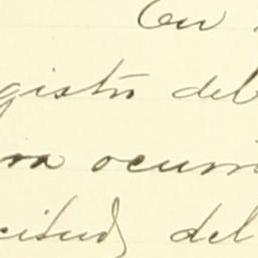 En
gistro del
ra ocurri
citud, del